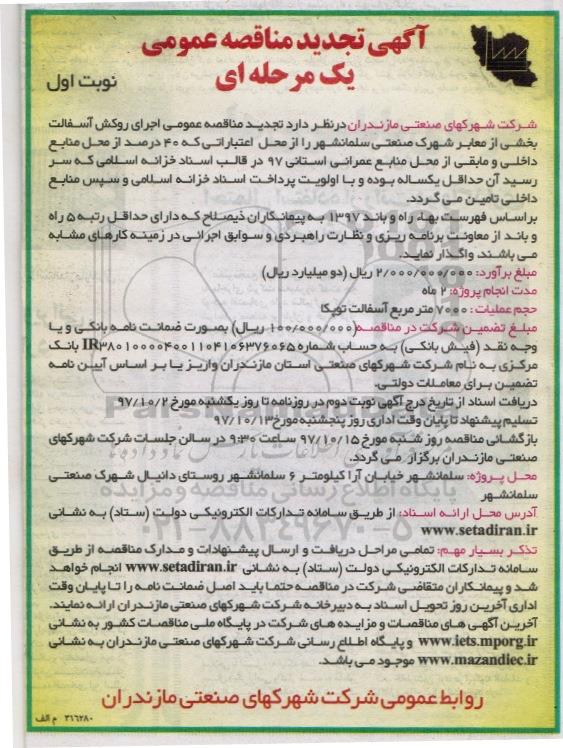 آگهی تجدید مناقصه عمومی
یک مرحله ای
نوبت اول
شرکت شهرکهای صنعتی مازندران درنظر دارد تجدید مناقصه عمومی اجرای روکش آسفالت
بخشی از معابر شهرک صنعتی سلمانشهر را از محل اعتباراتی که ۴۰ درصد از محل منابع
داخلی و مابقی از محل منابع عمرانی استانی ۹۷ در قالب اسناد خزانه اسلامی که سر
رسید آن حداقل یکساله بوده و با اولویت پرداخت اسناد خزانه اسلامی و سپس منابع
داخلی تامین می گردد.
براساس فهرست بهاء راه و باند ۱۳۹۷ به پیمانکاران ذیصلاح که دارای حداقل رتبه ۵ راه
و باند از معاونت برنامه ریزی و نظارت راهبردی و سوابق اجرائی در زمینه کارهای مشابه
می باشند، واگذار نماید.
مبلغ برآورد: ۲/۰۰۰/۰۰۰/۰۰۰ ریال (دو میلیارد ریال)
مدت انجام پروژه: ۲ ماه
حجم عملیات: ۷۰۰۰ متر مربع آسفالت توپکا
مبلغ تضمین شرکت در مناقصه (۱۰۰/۰۰۰/۰۰۰ ریال) بصورت ضمانت نامه بانکی و یا
وجه نقد (فیش بانکی) به حساب شماره IR۳۸۰۱۰۰۰۰۴۰۰۱۱۰۴۱۰۶۳۷۶۰۶۵ بانک
مرکزی به نام شرکت شهرکهای صنعتی استان مازندران واریز یا بر اساس آیین نامه
تضمین برای معاملات دولتی.
دریافت اسناد از تاریخ درج آگهی نوبت دوم در روزنامه تا روز یکشنبه مورخ ۹۷/۱۰/۲
تسلیم پیشنهاد تا پایان وقت اداری روز پنجشنبه مورخ ۹۷/۱۰/۱۳
بازگشائی مناقصه روز شنبه مورخ ۹۷/۱۰/۱۵ ساعت ۹:۳۰ در سالن جلسات شرکت شهرکهای
صنعتی مازندران برگزار می گردد.
محل پروژه: سلمانشهر خیابان آرا کیلومتر ۶ سلمانشهر روستای دانیال شهرک صنعتی
سلمانشهر
آدرس محل ارائه اسناد: از طریق سامانه تدارکات الکترونیکی دولت (ستاد) به نشانی
www.setadiran.ir
تذکر بسیار مهم: تمامی مراحل دریافت و ارسال پیشنهادات و مدارک مناقصه از طریق
سامانه تدارکات الکترونیکی دولت (ستاد) به نشانی www.setadiran.ir انجام خواهد
شد و پیمانکاران متقاضی شرکت در مناقصه حتما باید اصل ضمانت نامه را تا پایان وقت
اداری آخرین روز تحویل اسناد به دبیرخانه شرکت شهرکهای صنعتی مازندران ارائه نمایند.
آخرین آگهی های مناقصات و مزایده های شرکت در پایگاه ملی مناقصات کشور به نشانی
www.iets.mporg.ir و پایگاه اطلاع رسانی شرکت شهرکهای صنعتی مازندران به نشانی
www.mazandiec.ir موجود می باشد.
روابط عمومی شرکت شهرکهای صنعتی مازندران
۳۱۶۲۸۰ م الف
پایگاه اطلاع رسانی مناقصه و مزایده
۰۲۱-۸۸۳۴۹۶۷۰-۵